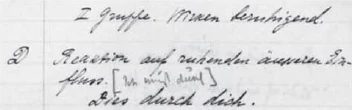 I Gruppe. Wirken beruhigend.
D Reaktion auf ruhenden äusseren Ein-
fluss. [Ich durch]
Das durch dich.